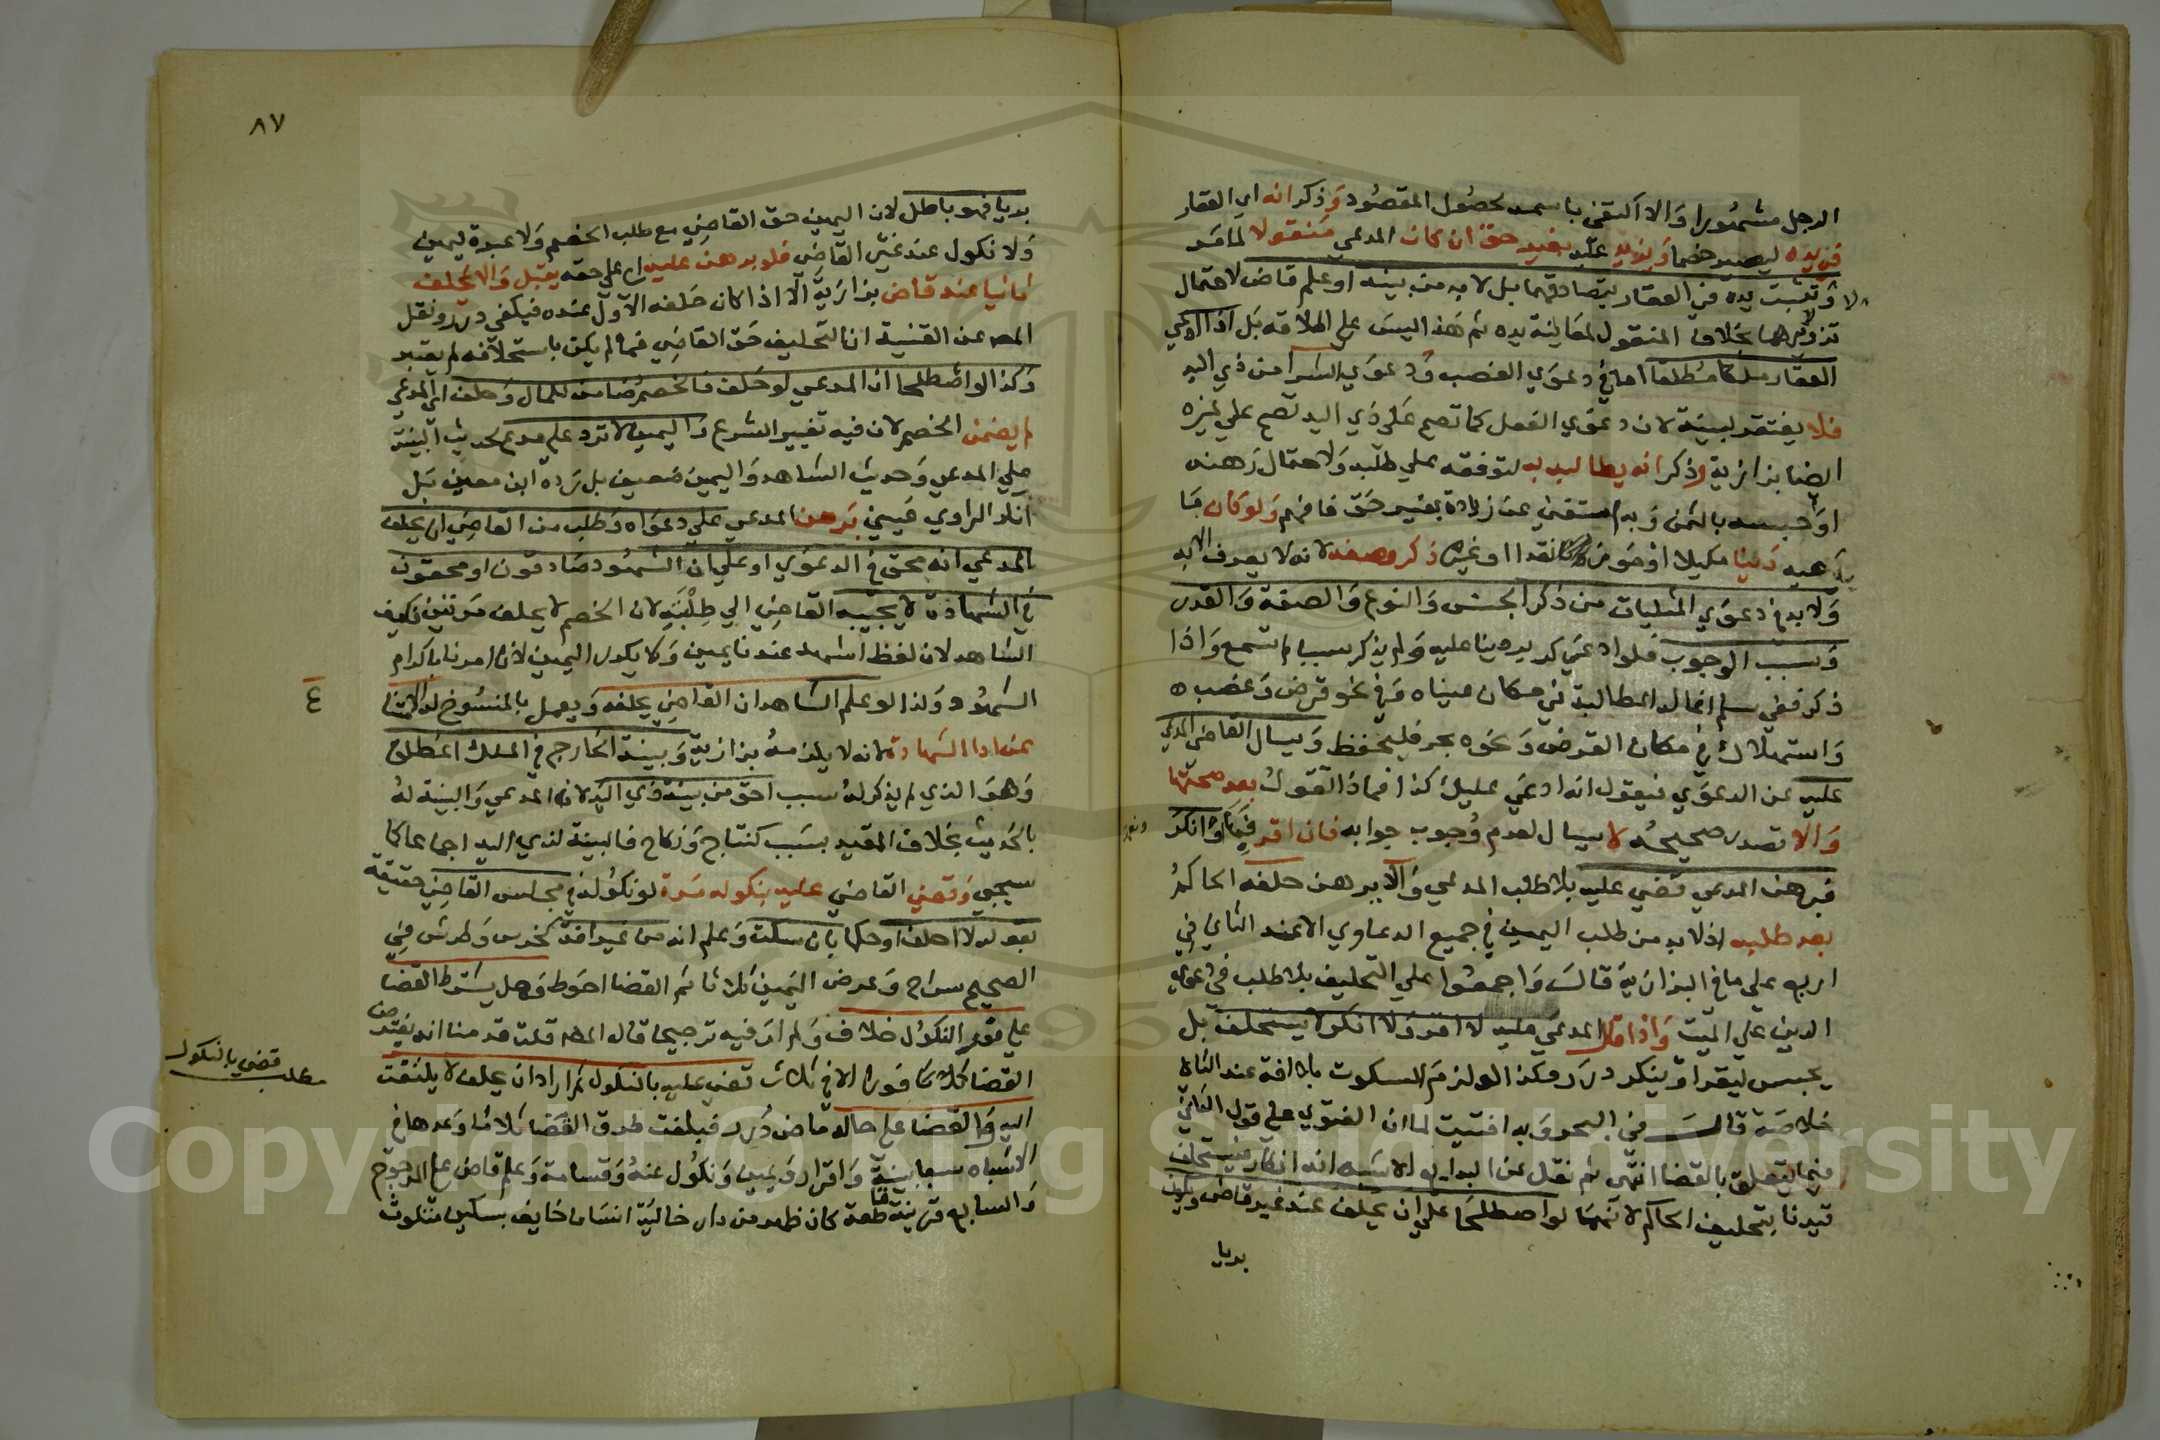 الرجل مشهورا والا اكتفى باسمه لحصول المقصود وذكر انه اي العقار
في يده ليصير خصما ويزيد عليه بغير حق ان كان المدعي منقولا لما مر
ولا تثبت يده في العقار بتصادقهما بل لا بد من بينة او علم قاض لاحتمال
تزويرهما بخلاف المنقول لمعاينة يده ثم هذا ليس على اطلاقه بل اذا ادعى
العقار ملكا مطلقا اما في دعوي الغصب ودعوي الشرا من ذي اليد
فلا يفتقر لبينة لان دعوي الفعل كما تصح على ذي اليد تصح علي غيره
ايضا بزازية وذكر انه يطالبه به لتوقفه علي طلبه ولاحتمال رهنه
او حبسه بالثمن وبه استغني عن زيادة بغير حق فافهم ولو كان ما
يدعيه دينا مكيلا او موزونا نقدا او غيره ذكر وصفه لانه لا يعرف الا به
ولا بد في دعوي المثليات من ذكر الجنس والنوع والصفة والقدر
وسبب الوجوب فلو ادعي كر بر دينا عليه ولم يذكر سببا لم تسمع واذا
ذكر ففي سلم انما له المطالبة في مكان عيناه وفي نحو قرض وغصب
واستهلاك في مكان القرض ونحوه بحر فليحفظ ويسال القاضي المدعي
عليه عن الدعوي فيقول انه ادعي عليك كذا فماذا تقول بعد صحتها
والا تصدر صحيحه لا يسال لعدم وجوب جوابه فان اقر فيها او انكر
فبرهن المدعي قضي عليه بلا طلب المدعي والا يبرهن حلفه الحاكم
بعد طلبه اذ لا بد من طلب اليمين في جميع الدعاوي الا عند الثاني في
اربع على ما في البزازية قال واجمعوا علي التحليف بلا طلب في دعوي
الدين علي الميت واذا قال المدعي عليه لا اقر ولا انكر لا يستحلف بل
يحبس ليقر او ينكر درر وكذا لو لزم السكوت بلا افة عند الثاني
خلاصة قال في البحر وبه افتيت لما ان الفتوي على قول الثاني
فيما يتعلق بالقضا انتهى ثم نقل عن البدايع الاشبه انه انكار فيستحلف
قيدنا بتحليف الحاكم لانهما لو اصطلحا علي ان يحلف عند غير قاض ويكون
بديا
٨٧
بديا فهو باطل لان اليمين حق القاضي مع طلب الخصم ولا عبرة ليمين
ولا نكول عند غير القاضي فلو برهن عليه اي علي حقه يقبل والا يحلف
ثانيا عند قاض بزازية الا اذا كان حلفه الاول عنده فيكفي درر ونقل
المص عن القنية ان التحليف حق القاضي فما لم يكن باستحلافه لم يعتبر
وكذا لو اصطلحا ان المدعي لو حلف فالخصم ضامن للمال وحلف اي المدعي
لم يضمن الخصم لان فيه تغيير الشرع واليمين لا ترد علي مدع لحديث البينة
علي المدعي وحديث الشاهد واليمين ضعيف بل رده ابن معين بل
انكر الراوي عيني برهن المدعي علي دعواه وطلب من القاضي ان يحلف
المدعي انه محق في الدعوي او علي ان الشهود صادقون او محقون
في الشهادة لا يجيبه القاضي الي طلبته لان الخصم لا يحلف مرتين فكيف
الشاهد لان لفظ اشهد عندنا يمين ولا يكرر اليمين لانا امرنا باكرام
الشهود ولذا لو علم الشاهد ان القاضي يحلفه ويعمل بالمنسوخ له الامتناع
عن ادا الشهادة لانه لا يلزمه بزازية وبينة الخارج في الملك المطلق
وهو الذي لم يذكر له سبب احق من بينة ذي اليد لانه المدعي والبينة له
بالحديث بخلاف المقيد بسبب كنتاج ونكاح فالبينة لذي اليد اجماعا كما
سيجي وقضي القاضي عليه بنكوله مرة لو نكوله في مجلس القاضي حقيقة
بقوله لا احلف او حكما بان سكت وعلم انه من غير افة كخرس وطرش في
الصحيح سراج وعرض اليمين ثلاثا ثم القضا احوط وهل يشترط القضا
على فور النكول خلاف ولم ار فيه ترجيحا قاله المص قلت قدمنا انه يفترض
القضا فورا الا في ثلاث قضي عليه بالنكول ثم اراد ان يحلف لا يلتفت
اليه والقضا علي حاله ماض درر فبلغت طرق القضا ثلاثا وعدها في
الاشباه سبعا بينة واقرار ويمين ونكول عنه وقسامة وعلم قاض على المرجوح
والسابع قرينة قاطعة كان ظهر من دار خالية انسان خايف بسكين متلوث
ع
مطلب قضي بالنكول